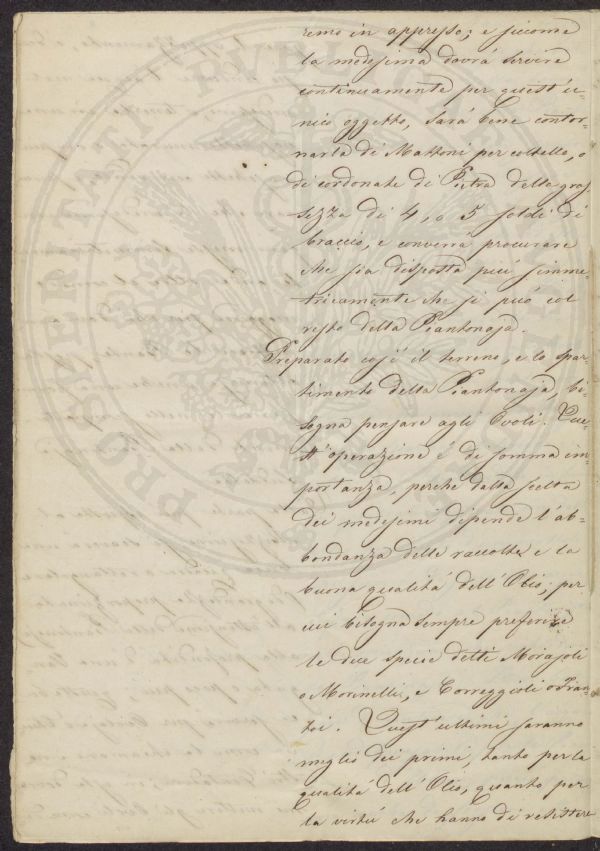 remo in appresso; e siccome
la medesima dovrà servire
continuamente per quest'u-
nico oggetto, sarà bene contor-
narla di Mattoni per coltello, o
di cordonate di Pietra della gros
sezza di 4, o 5 soldi di
braccio, e converrà procurare
che sia disposta più simme-
tricamente che si può col
resto della Piantonaja.
Preparato così il terreno, e lo spar-
timento della Piantonaja, bi-
sogna pensare agli Ovoli. Que-
st'operazione è di somma im-
portanza, perche dalla scelta
dei medesimi dipende l'ab-
bondanza delle raccolte e la
buona qualità dell'Olio; per
cui bisogna sempre preferire
le due specie detti Morajoli
o Morinelli, e Correggioli o Fran-
toi. Quest'ultimi saranno
meglio dei primi, tanto per la
qualità dell'Olio, quanto per
la virtù che hanno di resistere
PROSPERITATI PUBLICAE